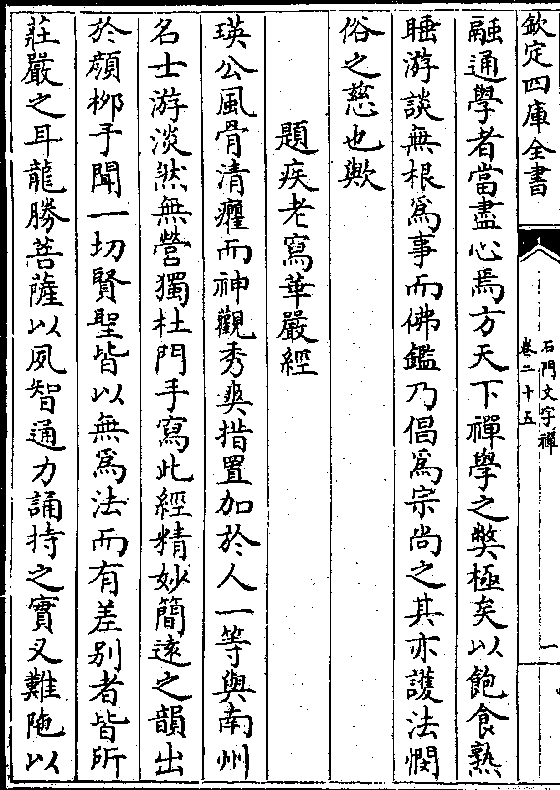 欽定四庫全書
石門文字禪
卷二十五
一
融通學者當盡心焉方天下禪學之獘極矣以飽食熟
睡游談無根爲事而佛鑑乃倡爲宗尚之其亦護法憫
俗之慈也歟
題疾老寫華嚴經
瑛公風骨清癯而神觀秀爽措置加於人一等與南州
名士游淡然無營獨杜門手寫此經精妙簡遠之韻出
於顔栁予聞一切賢聖皆以無爲法而有差别者皆所
莊嚴之耳龍勝菩薩以夙智通力誦持之實叉難陁以